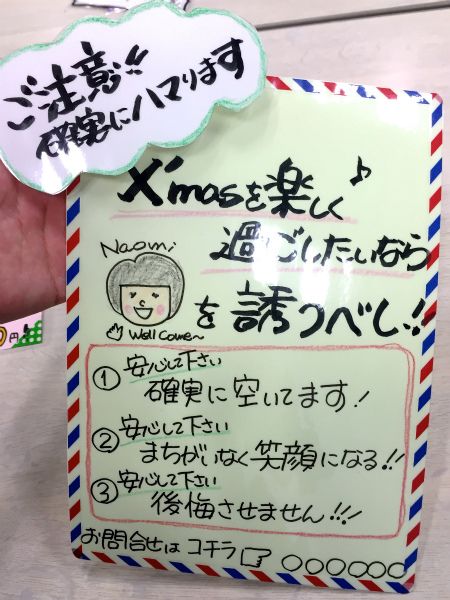 ご注意!!
確実にハマります
X'masを楽しく♪
過ごしたいなら
Naomi
を誘うべし!!
Well come~
① 安心して下さい
確実に空いてます!
② 安心して下さい
まちがいなく笑顔になる!!
③ 安心して下さい
後悔させません!!!
お問合せは コチラ☞ ○○○○○○
円